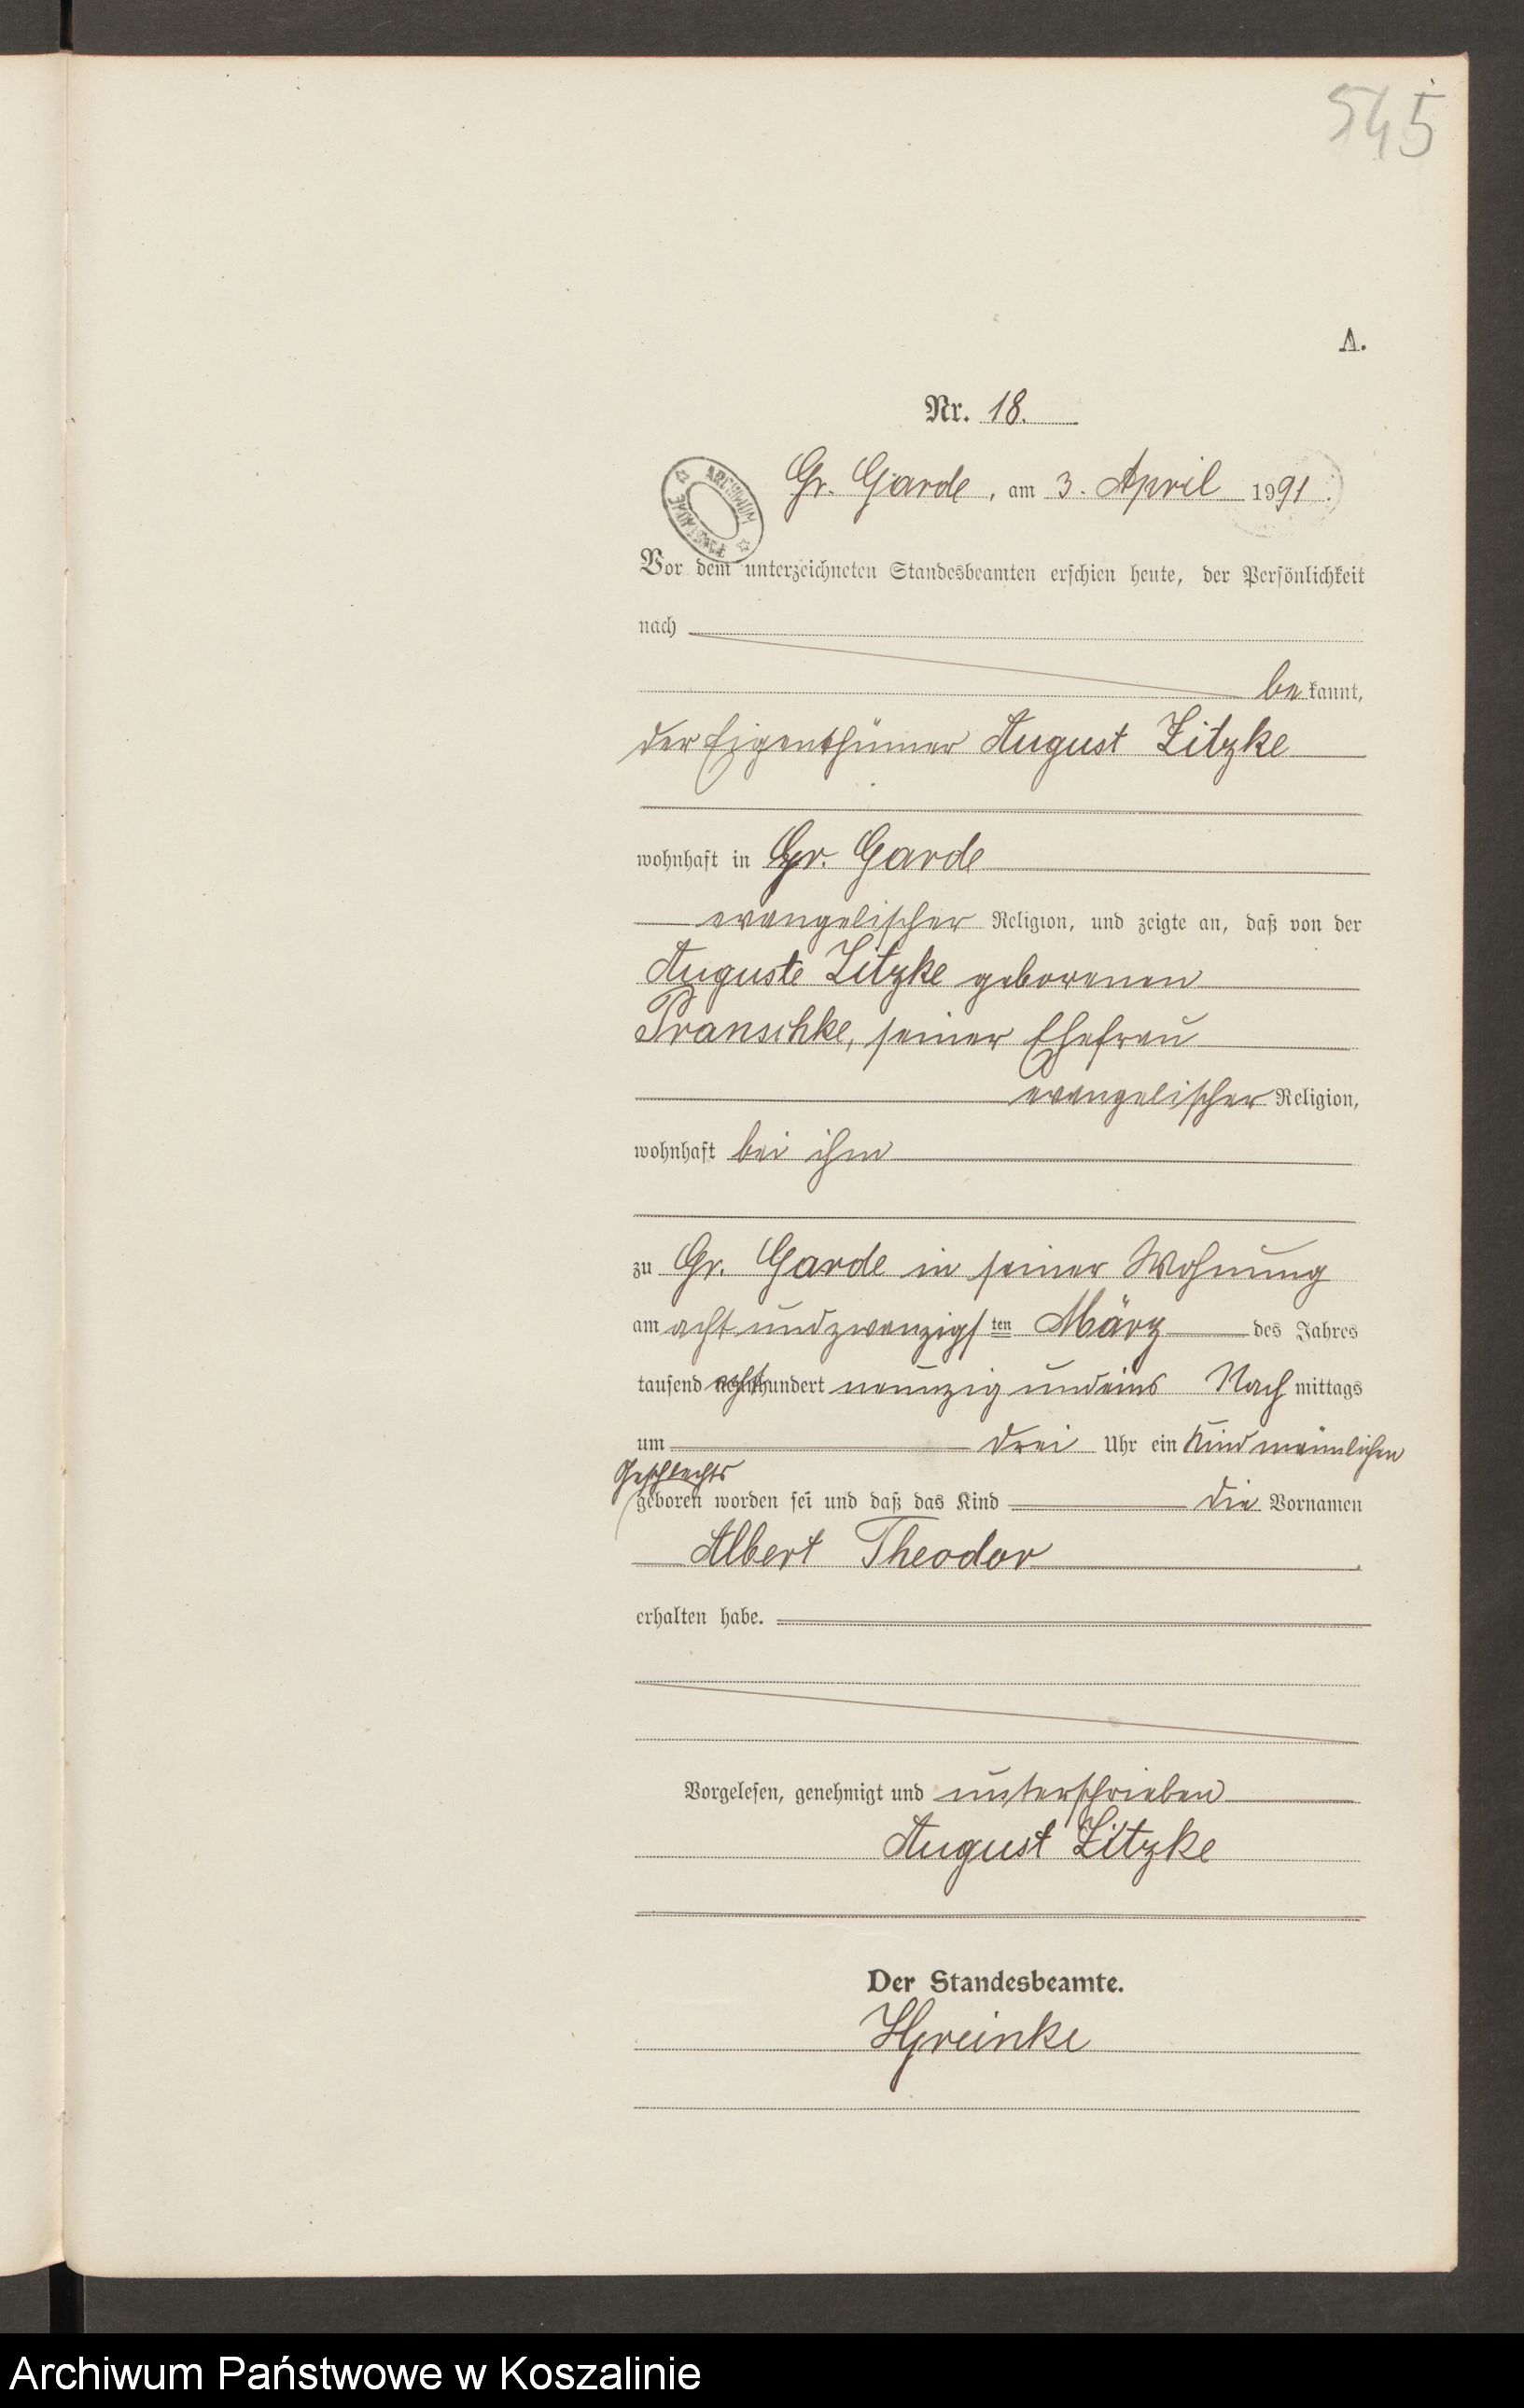 545
A.
Nr. 18.
ARCHIWUM
Gr. Garde, am 3. April 1991.
Vor dem unterzeichneten Standesbeamten erschien heute, der Persönlichkeit
nach
be kannt,
der Eigenthümer August Litzke
wohnhaft in Gr. Garde
evangelischer Religion, und zeigte an, daß von der
Auguste Litzke geborenen
Pranschke, seiner Ehefrau
evangelischer Religion,
wohnhaft bei ihm
zu Gr. Garde in seiner Wohnung
am acht und zwanzigsten März des Jahres
tausend achthundert neunzig und eins Nach mittags
um drei Uhr ein Kind männlichen
Geschlechts
geboren worden sei und daß das Kind die Vornamen
Albert Theodor
erhalten habe.
Vorgelesen, genehmigt und unterschrieben
August Litzke
Der Standesbeamte.
Archiwum Państwowe w Koszalinie